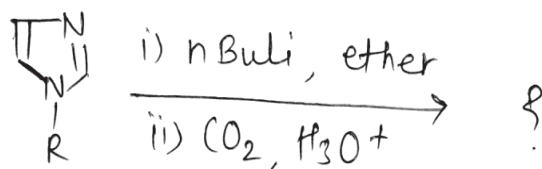 N
i) nBuli, ether
N
ii) CO2, H3O+
R
?